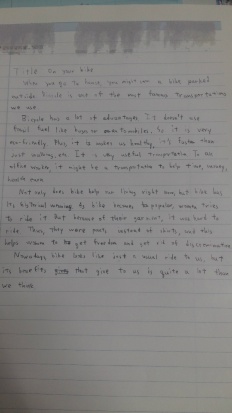 Title: Go your bike
When you go to house, you might see a bike parked
outside. Bicycle is one of the most famous transportations
we use.
Bicycle has a lot of advantages. It doesn't use
fossil fuel like buses or automobiles, so it is very
eco-friendly. Plus, it makes us healthy, it's faster than
just walking, etc. It is very useful transportation. To an
office worker, it might be a transportation to help time, money,
health more.
Not only does bike help our living right now, but bike has
its historical meaning. As bike became popular, women tried
to ride it. But because of their garments, it was hard to
ride. Thus, they wore pants instead of skirts, and this
helps women to get freedom and get rid of discrimination.
Nowadays, bike looks like just a usual ride to us, but
its benefits that give to us is quite a lot than
we think.